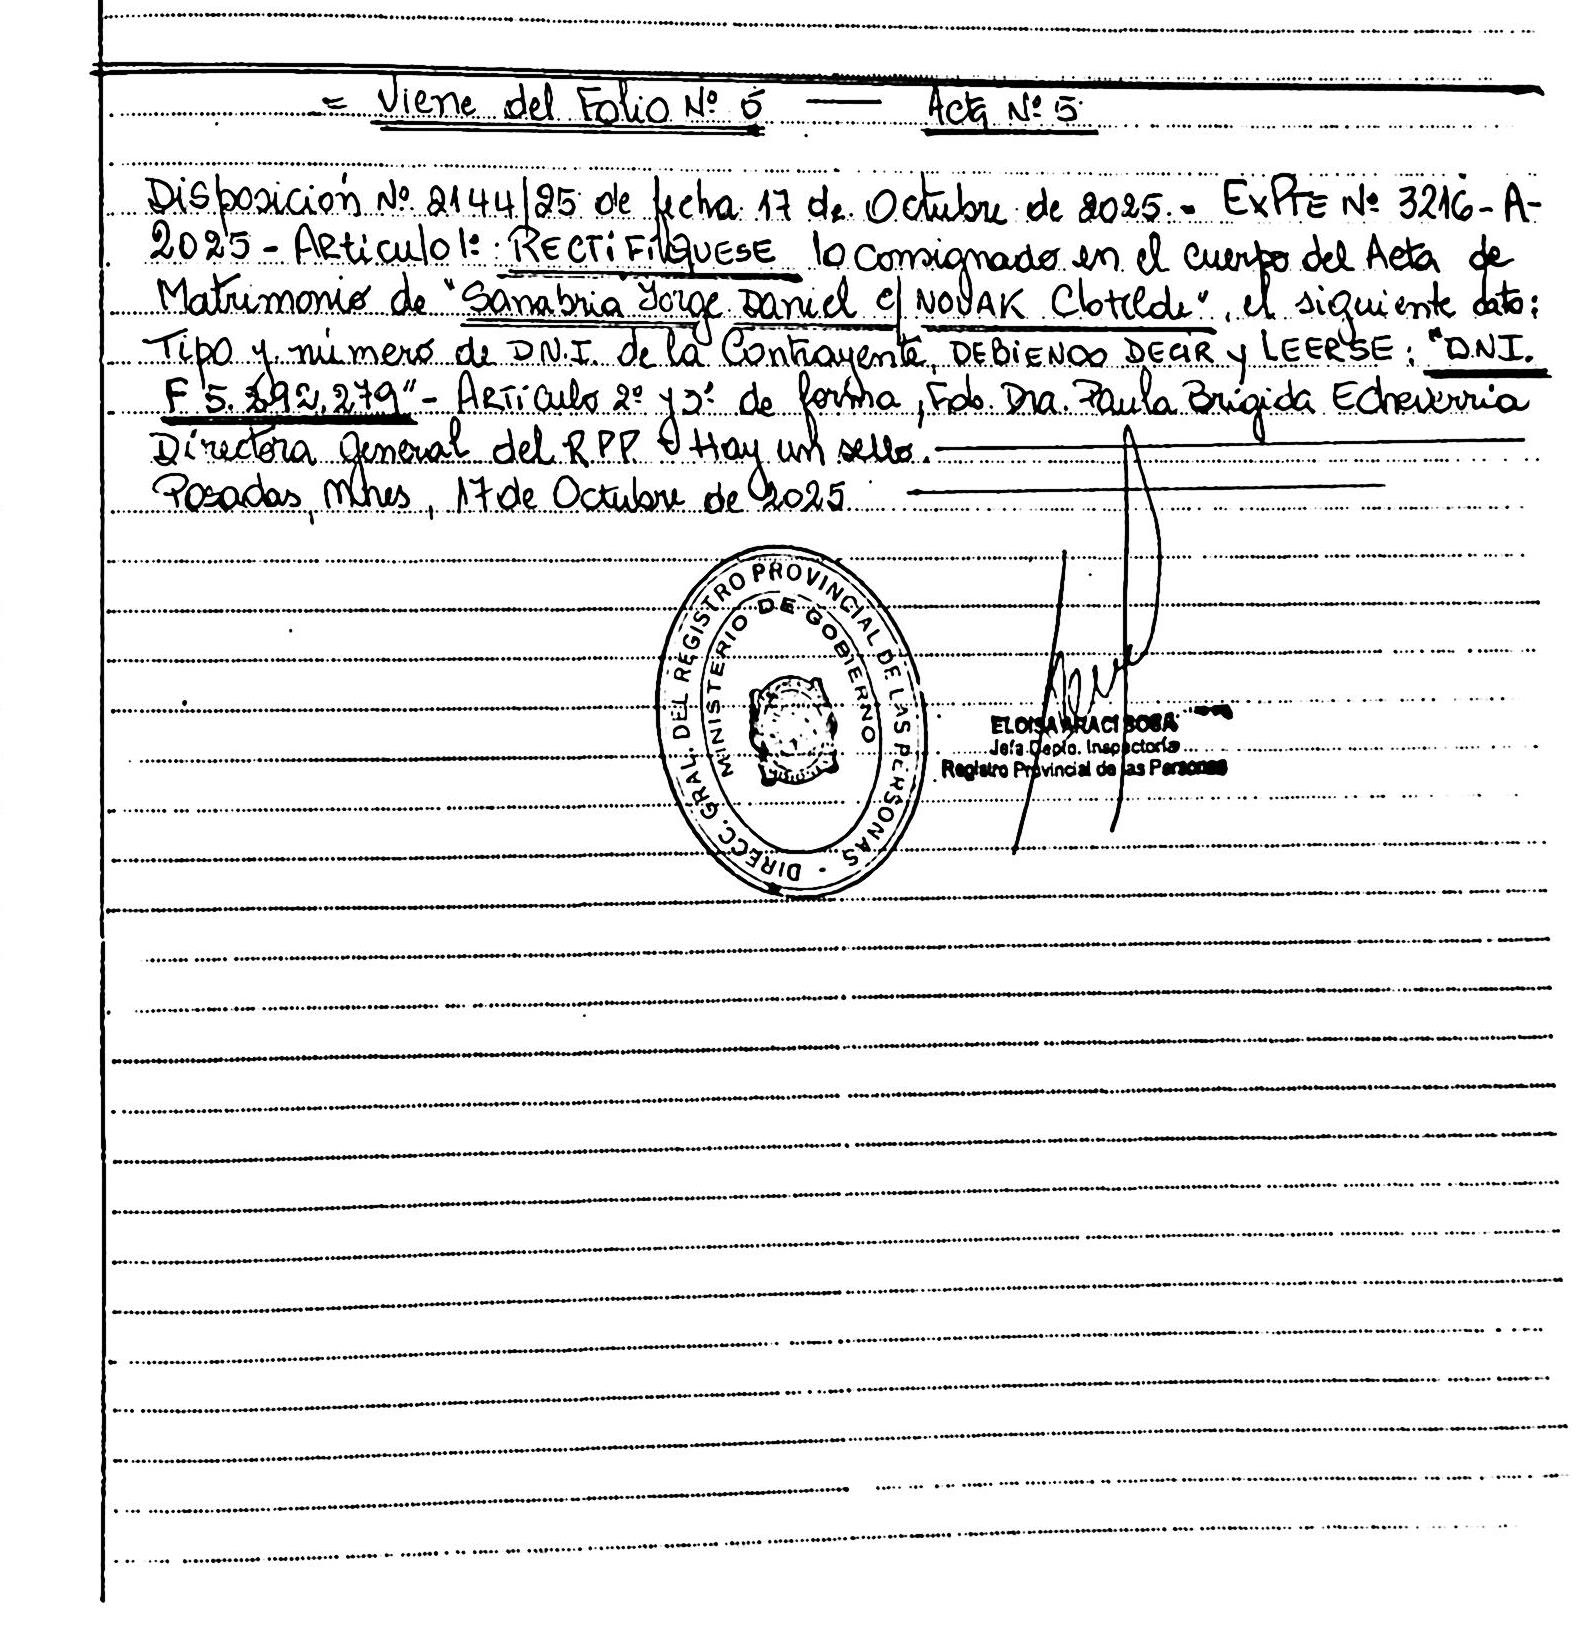 = Viene del Folio Nº 5 — Acta Nº 5
Disposición Nº 2144/25 de fecha 17 de Octubre de 2025.- ExPTE Nº 3216-A-
2025 - Artículo 1º: RECTIFÍQUESE lo consignado en el cuerpo del Acta de
Matrimonio de "Sanabria Jorge Daniel c/ NOVAK Clotilde", el siguiente dato:
Tipo y número de D.N.I. de la Contrayente, DEBIENDO DECIR y LEERSE: "D.N.I.
F 5. 279" - Artículo 2º y 3º de forma, Fdo. Dra. Paula Brígida Echeverria
Directora General del RPP Hay un sello.
Posadas, Mnes, 17 de Octubre de 2025
DIRECC. GRAL. DEL REGISTRO PROVINCIAL DE LAS PERSONAS -
MINISTERIO DE GOBIERNO
ELOISA ARACI SOSA
Jefa Depto. Inspectoría
Registro Provincial de las Personas